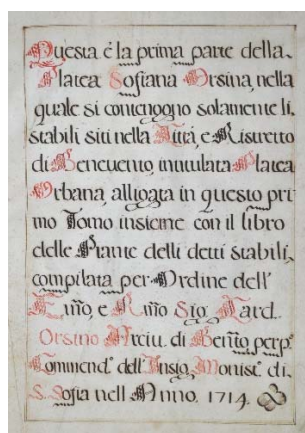 Questa è la prima parte della
Platea Sofiana Orsina, nella
quale si contengogno solamente li
stabili siti nella Città, e Ristretto
di Benevento, intitulata Platea
Orbana, alligata in questo pri
mo Tomo insieme con il libro
delle Piante delli detti stabili,
compilata per Ordine dell'
Emõ, e Rmõ Sig. Card.
Orsino Arciu. di Bentõ perp.
Commend.e dell'Insig. Monist.o di
S. Sofia nell'Anno. 1714.